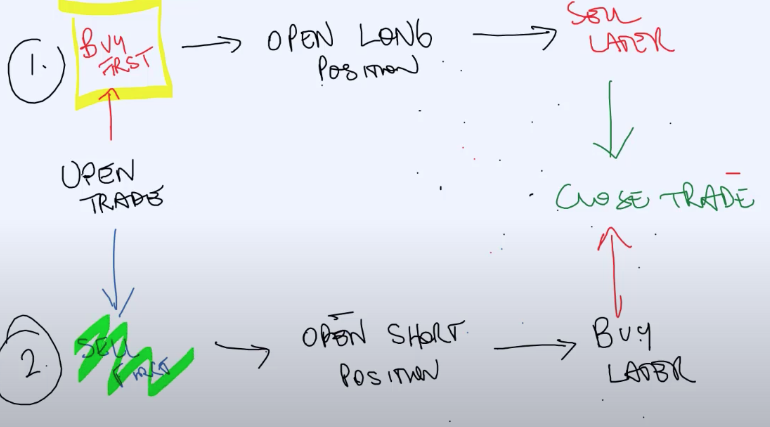 1.
BUY
FIRST
OPEN LONG
POSITION
SELL
LATER
OPEN
TRADE
CLOSE TRADE
2
SELL
FIRST
OPEN SHORT
POSITION
BUY
LATER